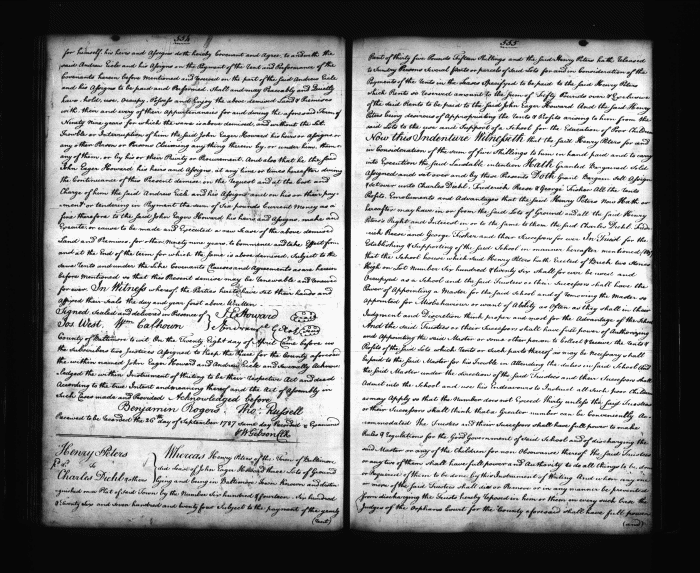 554
for himself, his heirs and Assigns doth hereby Covenant and Agree, to and with the
said Andrew Eisle and his Assigns on the Payment of the Rent and Performance of the
Covenants herein before Mentioned and Exprest on the part of the said Andrew Eisle
and his Assigns to be paid and Performed. Shall and may Peaceably and Quietly
have, hold, use, Occupy, Possess and Enjoy the above demised Land & Premises
with them and every of their Appurtenances for and during the aforesaid Term of
Ninety nine years, for which the same is above demised, and without the Let,
Trouble or Interruption of him the said John Eager Howard his heirs or Assigns or
any other Person or Persons Claiming any thing therein by, or under him, them or
any of them, or by his or their Privity or Procurement. And also that he the said
John Eager Howard his heirs and Assigns, at any time or times hereafter during
the Continuance of this Present demise, on the Request and at the Cost and
Charge of him the said Andrew Eisle and his Assigns and on his or their pay=
ment or tendering in Payment the sum of Six pounds Current Money as a
fine therefore to the said John Eager Howard his heirs and Assigns, make and
Execute, or cause to be made and Executed a new Lease of the above demised
Land and Premises, for other Ninety nine years, to commence and take Effect from
and at the End of the term for which the same is above demised, Subject to the
same Rents and under the like Covenants Clauses and Agreements as are herein
before Mentioned so that this Present demise may be Renewable and Renewed
for ever. In Witness whereof, the Parties hereto have set their hands and
affixed their Seals the day and year first above Written
Signed Sealed and delivered in Presence of J. E. Howard
Jas West. Wm Calhoun
County of Baltimore to wit On the Twenty Eight day of April Came before us
the Subscribers two Justices Assigned to Keep the Peace for the County aforesaid
the within named John Eager Howard and Andrew Eisle and severally Acknow=
ledged the within Instrument of Writing to be their respective Act and deed
According to the true Intent and meaning thereof and the Act of Assembly in
Such Case made and Provided Acknowledged before
Benjamin Rogers Tho. Russell
Received to be Recorded the 26th day of September 1787 same day Recorded & Examined
Wm Gibson Clk
Henry Peters
to
Charles Diehl & others
Whereas Henry Peters of the Town of Baltimore
did Lease of John Eager Howard three Lots of Ground
lying and being in Baltimore Town Known and distin
guished on a Plat of said Town by the Number Six hundred & fourteen Six hundred
& Twenty Six and Seven hundred and twenty four Subject to the payment of the yearly
(Rent)
555
Rent of thirty five Pounds fifteen Shillings and the said Henry Peters hath Released
to Sundry Persons Several parts or parcels of said Lots for and in Consideration of the
Payments of the Rents in the Leases Specified to be paid to the said Henry Peters
Such Rents so reserved amount to the sum of Fifty Pounds over & Exclusive
of the said Rents to be paid to the said John Eager Howard. And the said Henry
Peters being desirous of Appropriating the Rents & Profits arising to him from the
said Lots to the use and Support of a School for the Education of Poor Children
Now this Indenture Witnesseth that the said Henry Peters for and
in Consideration of the sum of five Shillings to him in hand paid and to carry
into Execution the said Laudable intention Hath Granted Bargained Sold
Assigned and set over and by these Presents Doth Grant Bargain Sell Assign
& set over unto Charles Diehl, Frederick Reese & George Fisher All the Rents
Profits Emoluments and Advantages that the said Henry Peters Now Hath or
hereafter may have in or from the said Lots of Ground and all the said Henry
Peters Right and Interest in or to the same to them the said Charles Diehl, Fred=
erick Reese and George Fisher and their Successors for ever In Trust for the
Establishing & Supporting of the said School in manner hereafter mentioned (Viz)
that the School house which said Henry Peters hath Erected of Brick two Stories
High on Lot Number Six hundred & twenty Six Shall for ever be used and
Occupied as a School and the said Trustees or their Successors shall have the
Power of Appointing a Master for the said School and of removing the Master so
Appointed for Misbehaviour or want of Ability as often as they shall in their
Judgment and Discretion think proper and meet for the Advantage of the School
And the said Trustees or their Successors shall have full power of Authorizing
and Appointing the said Master or some other person to Collect & Receive the Rents &
Profits of the said Lots which Rents or Such parts thereof as may be Necessary shall
be paid to the said Master for his Trouble in Attending the duties in said School And
the said Master under the direction of the said Trustees and their Successors shall
Admit into the School and use his Endeavours to Instruct all Such poor Children
as may Apply so that the Number does not Exceed Thirty unless the said Trustees
or their Successors shall think that a Greater number can be Conveniently Ac=
commodated The Trustees and their Successors shall have full power to make
Rules & Regulations for the Good Government of said School and of discharging the
said Master or any of the Children for non Observance thereof the said Trustees
or any two of them shall have full power and Authority to do all things to be done
or Required of them to be done by this Instrument of Writing And when any one
or more of the said Trustees shall die or Remove or in any manner be prevented
from discharging the Trusts hereby Reposed in him or them in every such Case the
Judges of the Orphans Court for the County aforesaid shall have full power
(and)